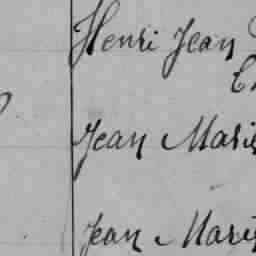 Henri Jean
Jean Marie
Jean Marie